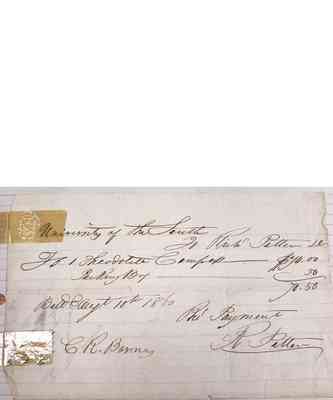 University of the South
To Rich Patten Dr
For 1 Theodolite Compass $70.00
Packing Box 50
70.50
Balt Augt 10th 1860
Recd Payment
C. R. Barney R. Patten